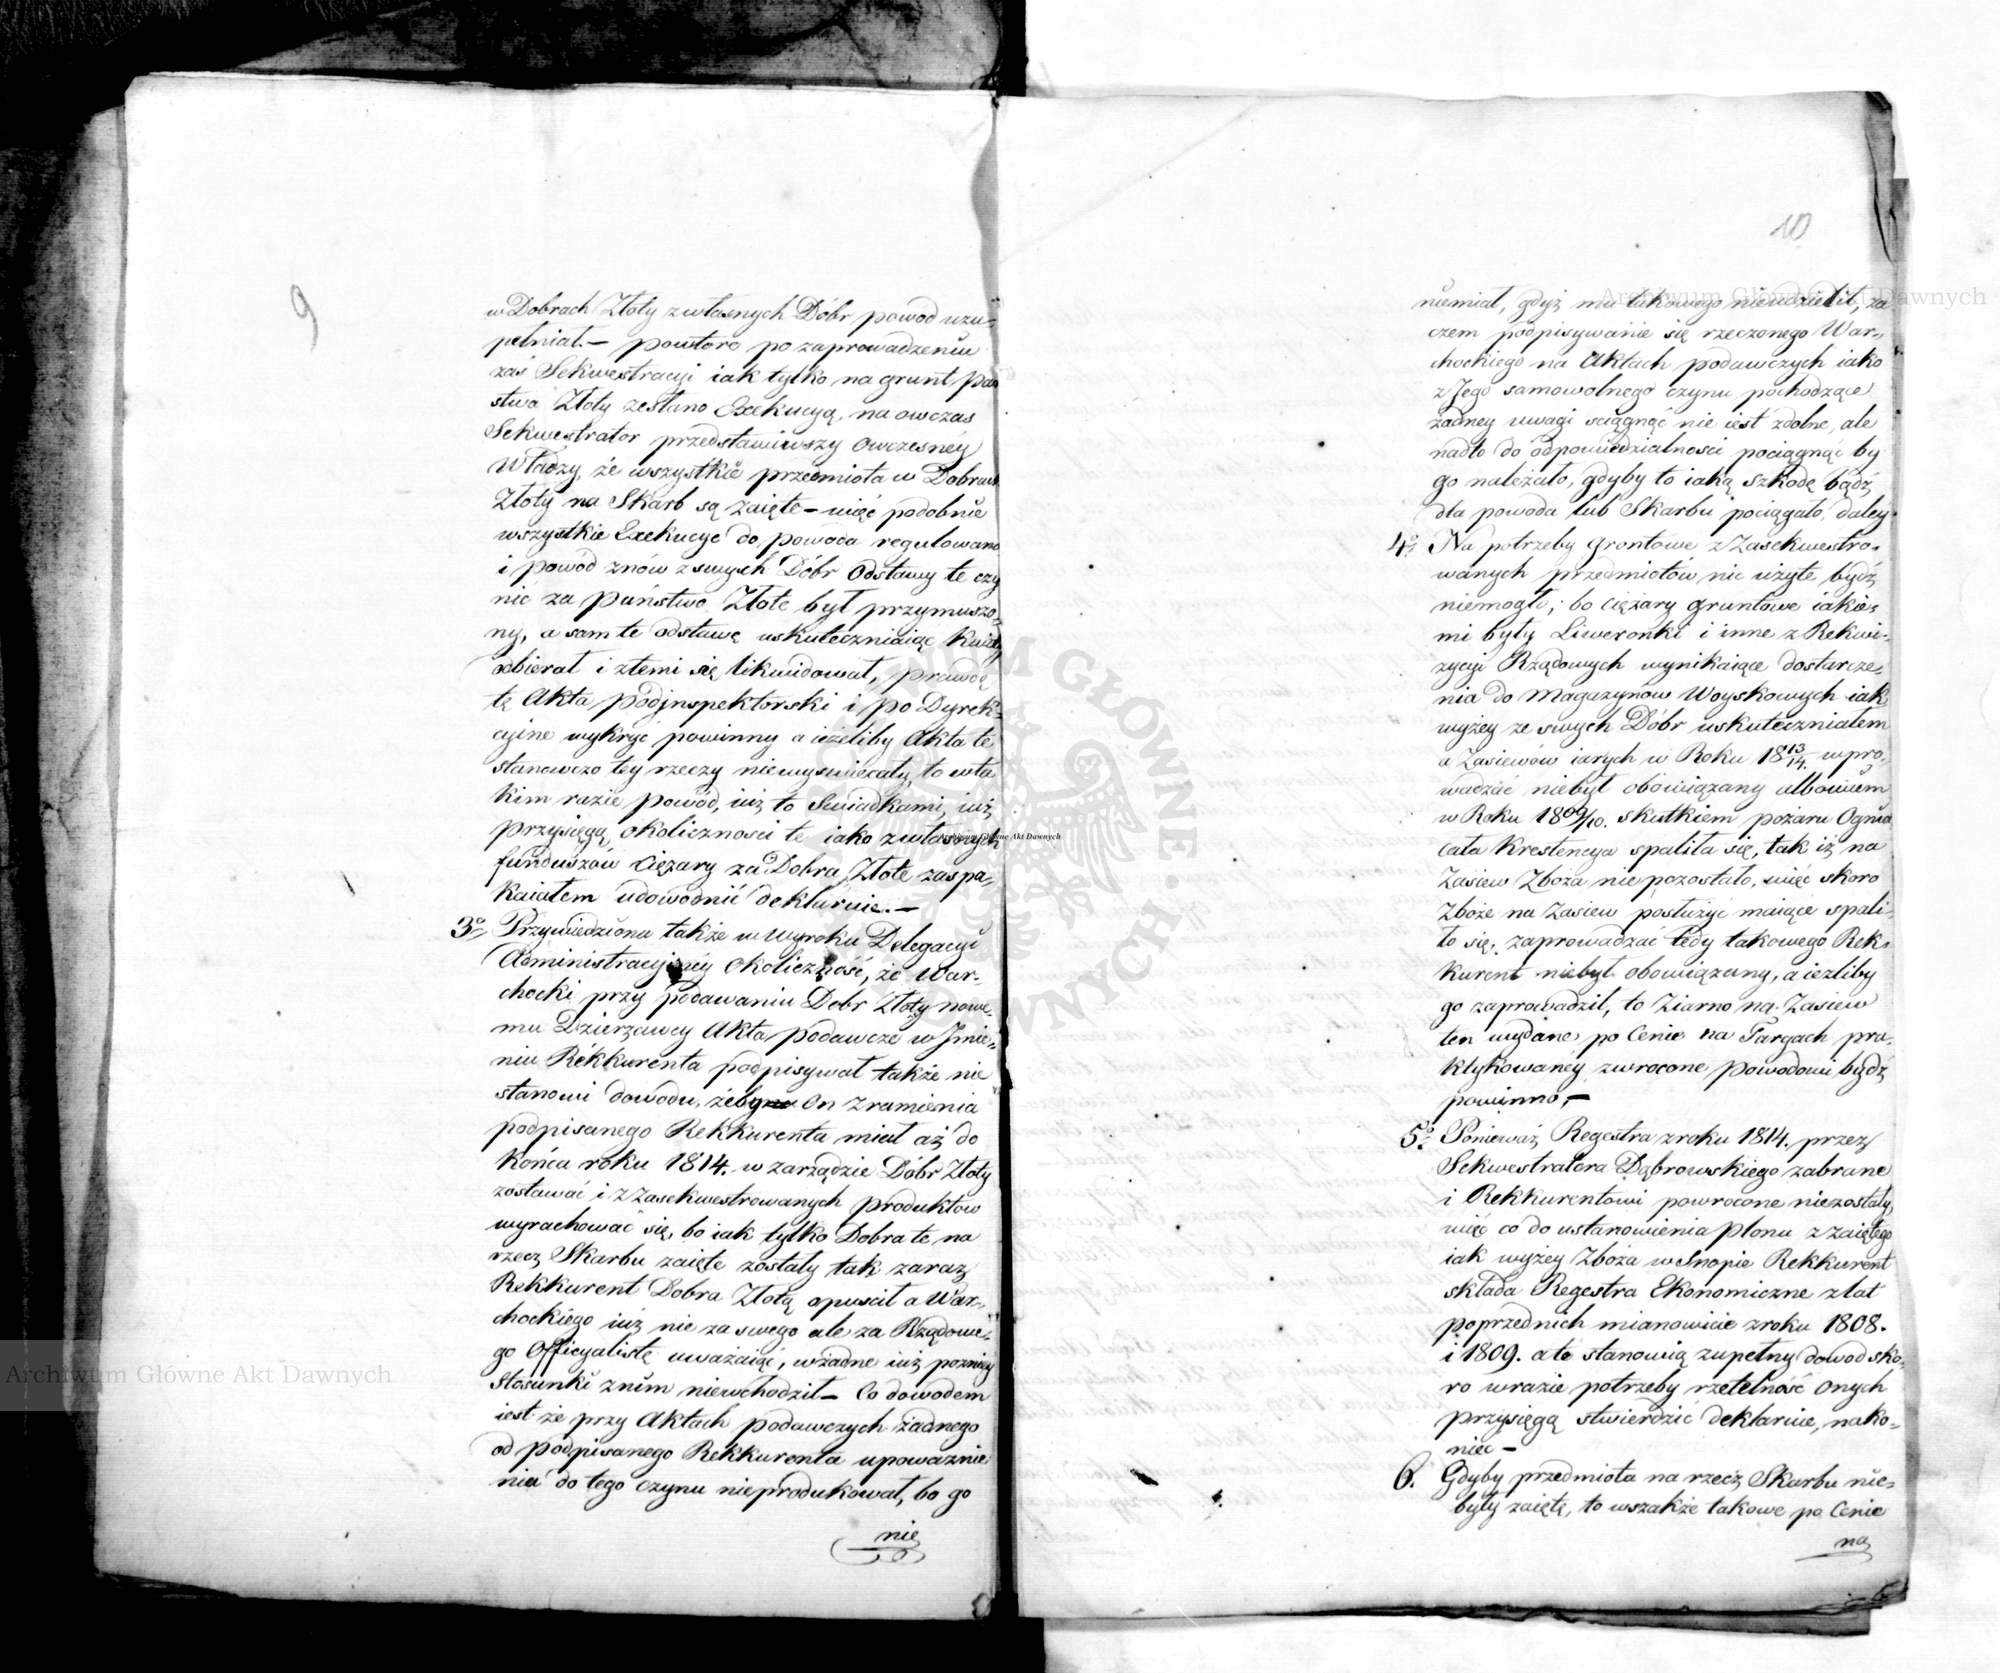 9
w Dobrach Złoty z własnych Dóbr powod uzu-
pełniał. — powtore po zaprowadzeniu
zaś Sekwestracyi iak tylko na grunt Pań
stwa Złoty zesłano Exekucyą, na owczas
Sekwestrator przedstawiwszy owczesnéy
Władzy, że wszystkie przedmiota w Dobrach
Złoty na Skarb są zaięte — więc podobnie
wszystkie Exekucye do powoda regulowano
i powód znów z swych Dóbr Odstawy te czy
nic za Państwo Złote był przymuszo-
ny, a sam te odstawę uskuteczniaiąc kwity
obierał i z temi się likwidował, prawdę
tę Akta podJnspektorski i po Dyrek-
cyine wykryć powinny a ieżeliby Akta te
stanowczo tey rzeczy niewyswiecały, to w ta
kim razie powód, iuż to Swiadkami, iuż
przysięgą okoliczności te iako z własnych
funduszów ciężary za Dobra Złote zaspa-
kaiałem udowodnić deklaruie. —
3o Przywiedziona także w Wyroku Delegacyi
Administracyjnéy okoliczność, że War-
chocki przy podawaniu Dobr Złoty nowe-
mu Dzierżawcy Akta podawcze w Jmie-
niu Rekkurenta podpisywał także nie
stanowi dowodu, żeby on z ramienia
podpisanego Rekkurenta miał aż do
końca roku 1814. w zarządzie Dóbr Złoty
zostawać i z zasekwestrowanych produktow
wyrachować się, bo iak tylko Dobra te na
rzecz Skarbu zaięte zostały tak zaraz
Rekkurent Dobra Złotą opuscił a War-
chockiego iuż nie za swego ale za Rządowe-
go Officyalistę uważaiąc, w żadne iuż pozniey
Stosunki z nim niewchodził — Co dowodem
iest że przy Aktach podawczych żadnego
od podpisanego Rekkurenta upoważnie
nia do tego czynu nieprodukował, bo go
nie
10
niemiał, gdyż mu takowego nieudzielił, za
czem podpisywanie się rzeczonego War-
chockiego na Aktach podawczych iako
z Jego samowolnego czynu pochodzące
żadney uwagi sciągnąć nie iest zdolne, ale
nadto do odpowiedzialnosci pociągnąć by
go należało, gdyby to iaką szkodę bądź
dla powoda lub Skarbu pociągało, daley
4o Na potrzeby grontowe z Zasekwestro-
wanych przedmiotów nic użyte bydź
niemogło, bo ciężary gruntowe iakie-
mi były Liweronki i inne z Rekwi-
zycyi Rządowych wynikaiące dostarcze-
nia do Magazynów Woyskowych iak
wyżey ze swych Dóbr uskuteczniałem
a Zasiewów iarych w Roku 18 13/14. wpro-
wadzać niebył obowiązany albowiem
w Roku 18 09/10. skutkiem pożaru Ognia
cała Krestencya spaliła się, tak iż na
Zasiew Zboża nie pozostało, więc skoro
Zboże na Zasiew posłużyć maiące spali-
ło się, zaprowadzać tedy takowego Rek-
kurent niebył obowiązany, a ieżliby
go zaprowadził, to Ziarno na Zasiew
ten wydane po Cenie na Targach pra-
ktykowanéy zwrocone powodowi bydź
powinno, —
5o Ponieważ Regestra z roku 1814. przez
Sekwestratora Dąbrowskiego zabrane
i Rekkurentowi powrocone niezostały,
więc co do ustanowienia plonu z zaiętego
iak wyżey Zboża w Snopie Rekkurent
składa Regestra Ekonomiczne z lat
poprzednich mianowicie z roku 1808.
i 1809. a te stanowią zupełny dowod sko-
ro w razie potrzeby rzetelność onych
przysięgą stwierdzić deklaruie, nako-
niec —
6. Gdyby przedmiota na rzecz Skarbu nie-
były zaięte, to wszakże takowe po Cenie
na
Archiwum Główne Akt Dawnych
Archiwum Główne Akt Dawnych
Archiwum Główne Akt Dawnych